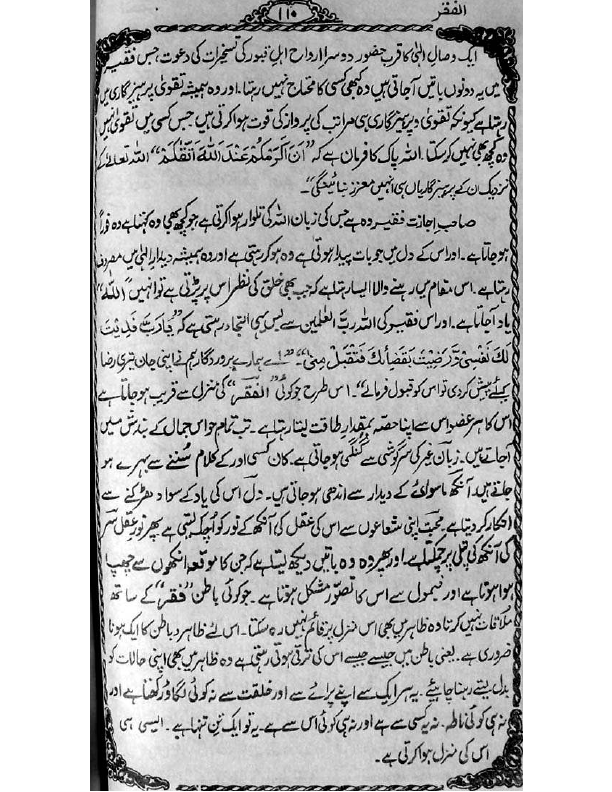 ۱۱۰
الفقر
ایک وصالِ الٰہی کا قرب حضور دوسرا ارواح اہلِ قبور کی تسخیرات کی دعوت، جس فقیر
میں یہ دونوں باتیں آجاتی ہیں وہ کبھی کسی کا محتاج نہیں رہتا۔ اور وہ ہمیشہ تقویٰ پرہیزگاری میں
رہتا ہے کیونکہ تقویٰ و پرہیزگاری ہی مراتب کی پرواز کی قوت ہوا کرتی ہیں جس کسی میں تقویٰ نہیں
وہ کچھ بھی نہیں کرسکتا۔ اللہ پاک کا فرمان ہے کہ "اِنَّ اَکْرَمَکُمْ عِنْدَ اللّٰہِ اَتْقٰکُمْ" اللہ تعالیٰ کے
نزدیک ان کے پرہیزگاریاں ہی انہیں معزز بنائیگی"۔
صاحبِ اجازت فقیر وہ ہے جس کی زبان اللہ کی تلوار ہوا کرتی ہے جو کچھ بھی وہ کہتا ہے وہ فوراً
ہو جاتا ہے۔ اور اس کے دل میں جو بات پیدا ہوتی ہے وہ ہو کر رہتی ہے اور وہ ہمیشہ دیدارِ الٰہی میں مصروف
رہتا ہے۔ اس مقام میں رہنے والا ایسا رہتا ہے کہ جب بھی خلق کی نظر اس پر پڑتی ہے تو انہیں "اللہ"
یاد آجاتا ہے۔ اور اس فقیر کی اللہ ربّ العٰلمین سے بس یہی التجا رہتی ہے کہ "یَا رَبِّ فَدَیْتُ
لَكَ نَفْسِیْ وَرَضِیْتُ بِقَضَائِكَ فَتَقَبَّلْ مِنِّیْ"۔ "اے ہمارے پروردگار ہم نے اپنی جان تیری رضا
کیلئے پیش کر دی تو اس کو قبول فرما لے"۔ اس طرح جو کوئی "الفقر" کی منزل سے قریب ہو جاتا ہے
اس کا ہر عضو اس سے اپنا حصّہ بمقدارِ طاقت لیتا رہتا ہے۔ تب تمام حواس جمال کے بندش میں
آجاتے ہیں۔ زبان غیر کی سرگوشی سے گنگی ہو جاتی ہے۔ کان کسی اور کے کلام سُننے سے بہرے ہو
جاتے ہیں۔ آنکھ ماسویٰ کے دیدار سے اندھی ہو جاتی ہیں۔ دل اس کی یاد کے سوا دھڑکنے سے
انکار کر دیتا ہے۔ محبّت اپنی شعاعوں سے اس کی عقل کی آنکھ کے نور کو اُچک لیتی ہے پھر نورِ عقل سر
کی آنکھ کی پتلی پر چمکتا ہے۔ اور پھر وہ وہ باتیں دیکھ لیتا ہے کہ جن کا موقعہ آنکھوں سے چھپا
ہوا ہوتا ہے اور فہموں سے اس کا تصوّر مشکل ہوتا ہے۔ جو کوئی باطن "فقر" کے ساتھ
ملاقات نہیں کرتا وہ ظاہر میں بھی اس منزل پر قائم نہیں رہ سکتا۔ اس لئے ظاہر و باطن کا ایک ہونا
ضروری ہے۔ یعنی باطن میں جیسے جیسے اس کی ترقی ہوتی رہتی ہے وہ ظاہر میں بھی اپنی حالات کو
بدل لیتے رہنا چاہیئے۔ یہ ہر ایک سے اپنے پرائے سے اور خلقت سے نہ کوئی لگاؤ رکھتا ہے اور
نہ ہی کوئی ناطہ۔ نہ یہ کسی سے ہے اور نہ ہی کوئی اس سے ہے۔ یہ تو ایک تنِ تنہا ہے۔ ایسی ہی
اس کی منزل ہوا کرتی ہے۔